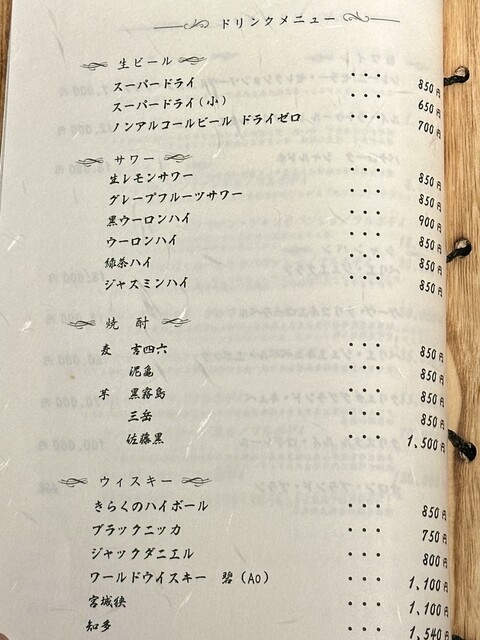 ドリンクメニュー
生ビール
スーパードライ ・・・ 850円
スーパードライ(小) ・・・ 650円
ノンアルコールビール ドライゼロ ・・・ 700円
サワー
生レモンサワー ・・・ 850円
グレープフルーツサワー ・・・ 850円
黒ウーロンハイ ・・・ 900円
ウーロンハイ ・・・ 850円
緑茶ハイ ・・・ 850円
ジャスミンハイ ・・・ 850円
焼酎
麦 吉四六 ・・・ 850円
泥亀 ・・・ 850円
芋 黒霧島 ・・・ 850円
三岳 ・・・ 850円
佐藤黒 ・・・ 1,500円
ウィスキー
きらくのハイボール ・・・ 850円
ブラックニッカ ・・・ 750円
ジャックダニエル ・・・ 800円
ワールドウイスキー 碧(AO) ・・・ 1,100円
宮城峡 ・・・ 1,100円
知多 ・・・ 1,540円